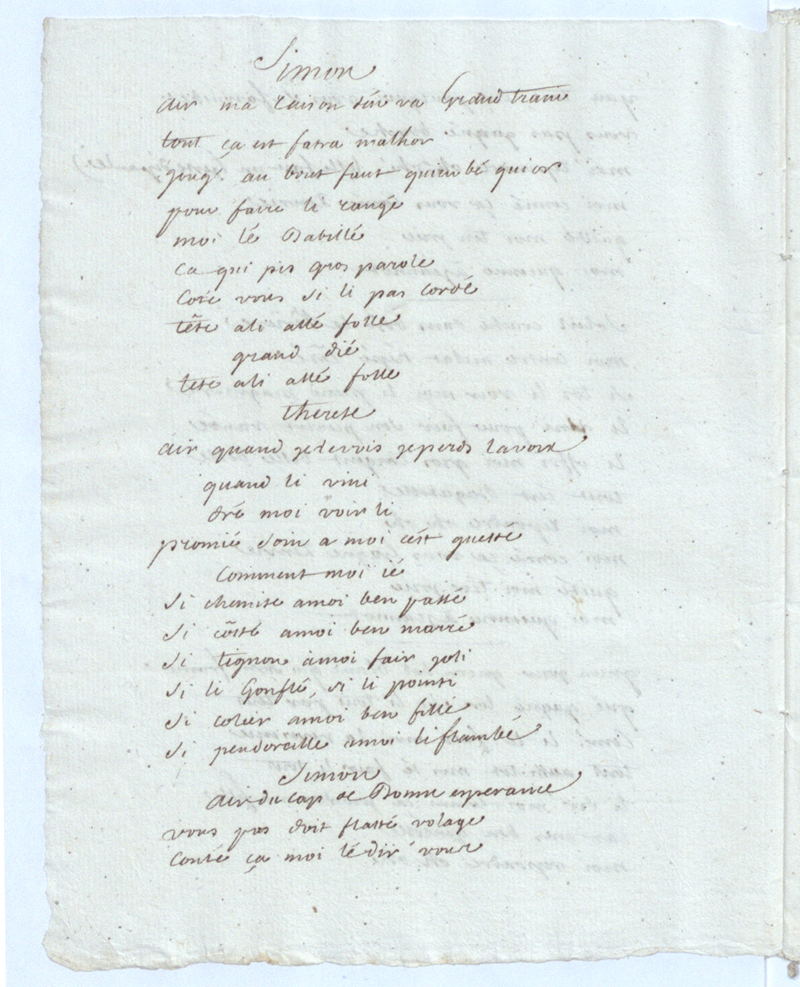 Simon
air ma raison s'en va Grand train
tout ça est fatra malhor
jusq' au bout faut quimbé quior
pour faire li rangé
moi lé Babillé
ca qui pis gros parole
Coté vous si li pas cordé
tête ali allé folle
grand dié
tete ali allé folle
therese
air quand je le vois je perds la voix
quand li vini
dré moi voir li
promié soin a moi c'ést questé
Comment moi ié
si chemise a moi ben passé
si côsté a moi ben marré
si tignon à moi fair joli
si li Gonflé, si li pointi
si colier a moi ben fillé
si pendoreille amoi li flambé
Simon
air du cap de Bonne esperance
vous pas doit flatté volage
Couté ça moi lé diré vous